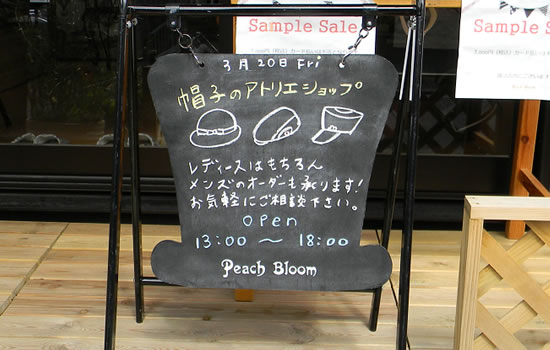 Sample Sale
Sample Sale
3月20日 Fri
帽子のアトリエショップ
レディースはもちろん
メンズのオーダーも承ります!
お気軽にご相談下さい。
Open
13:00 〜 18:00
Peach Bloom